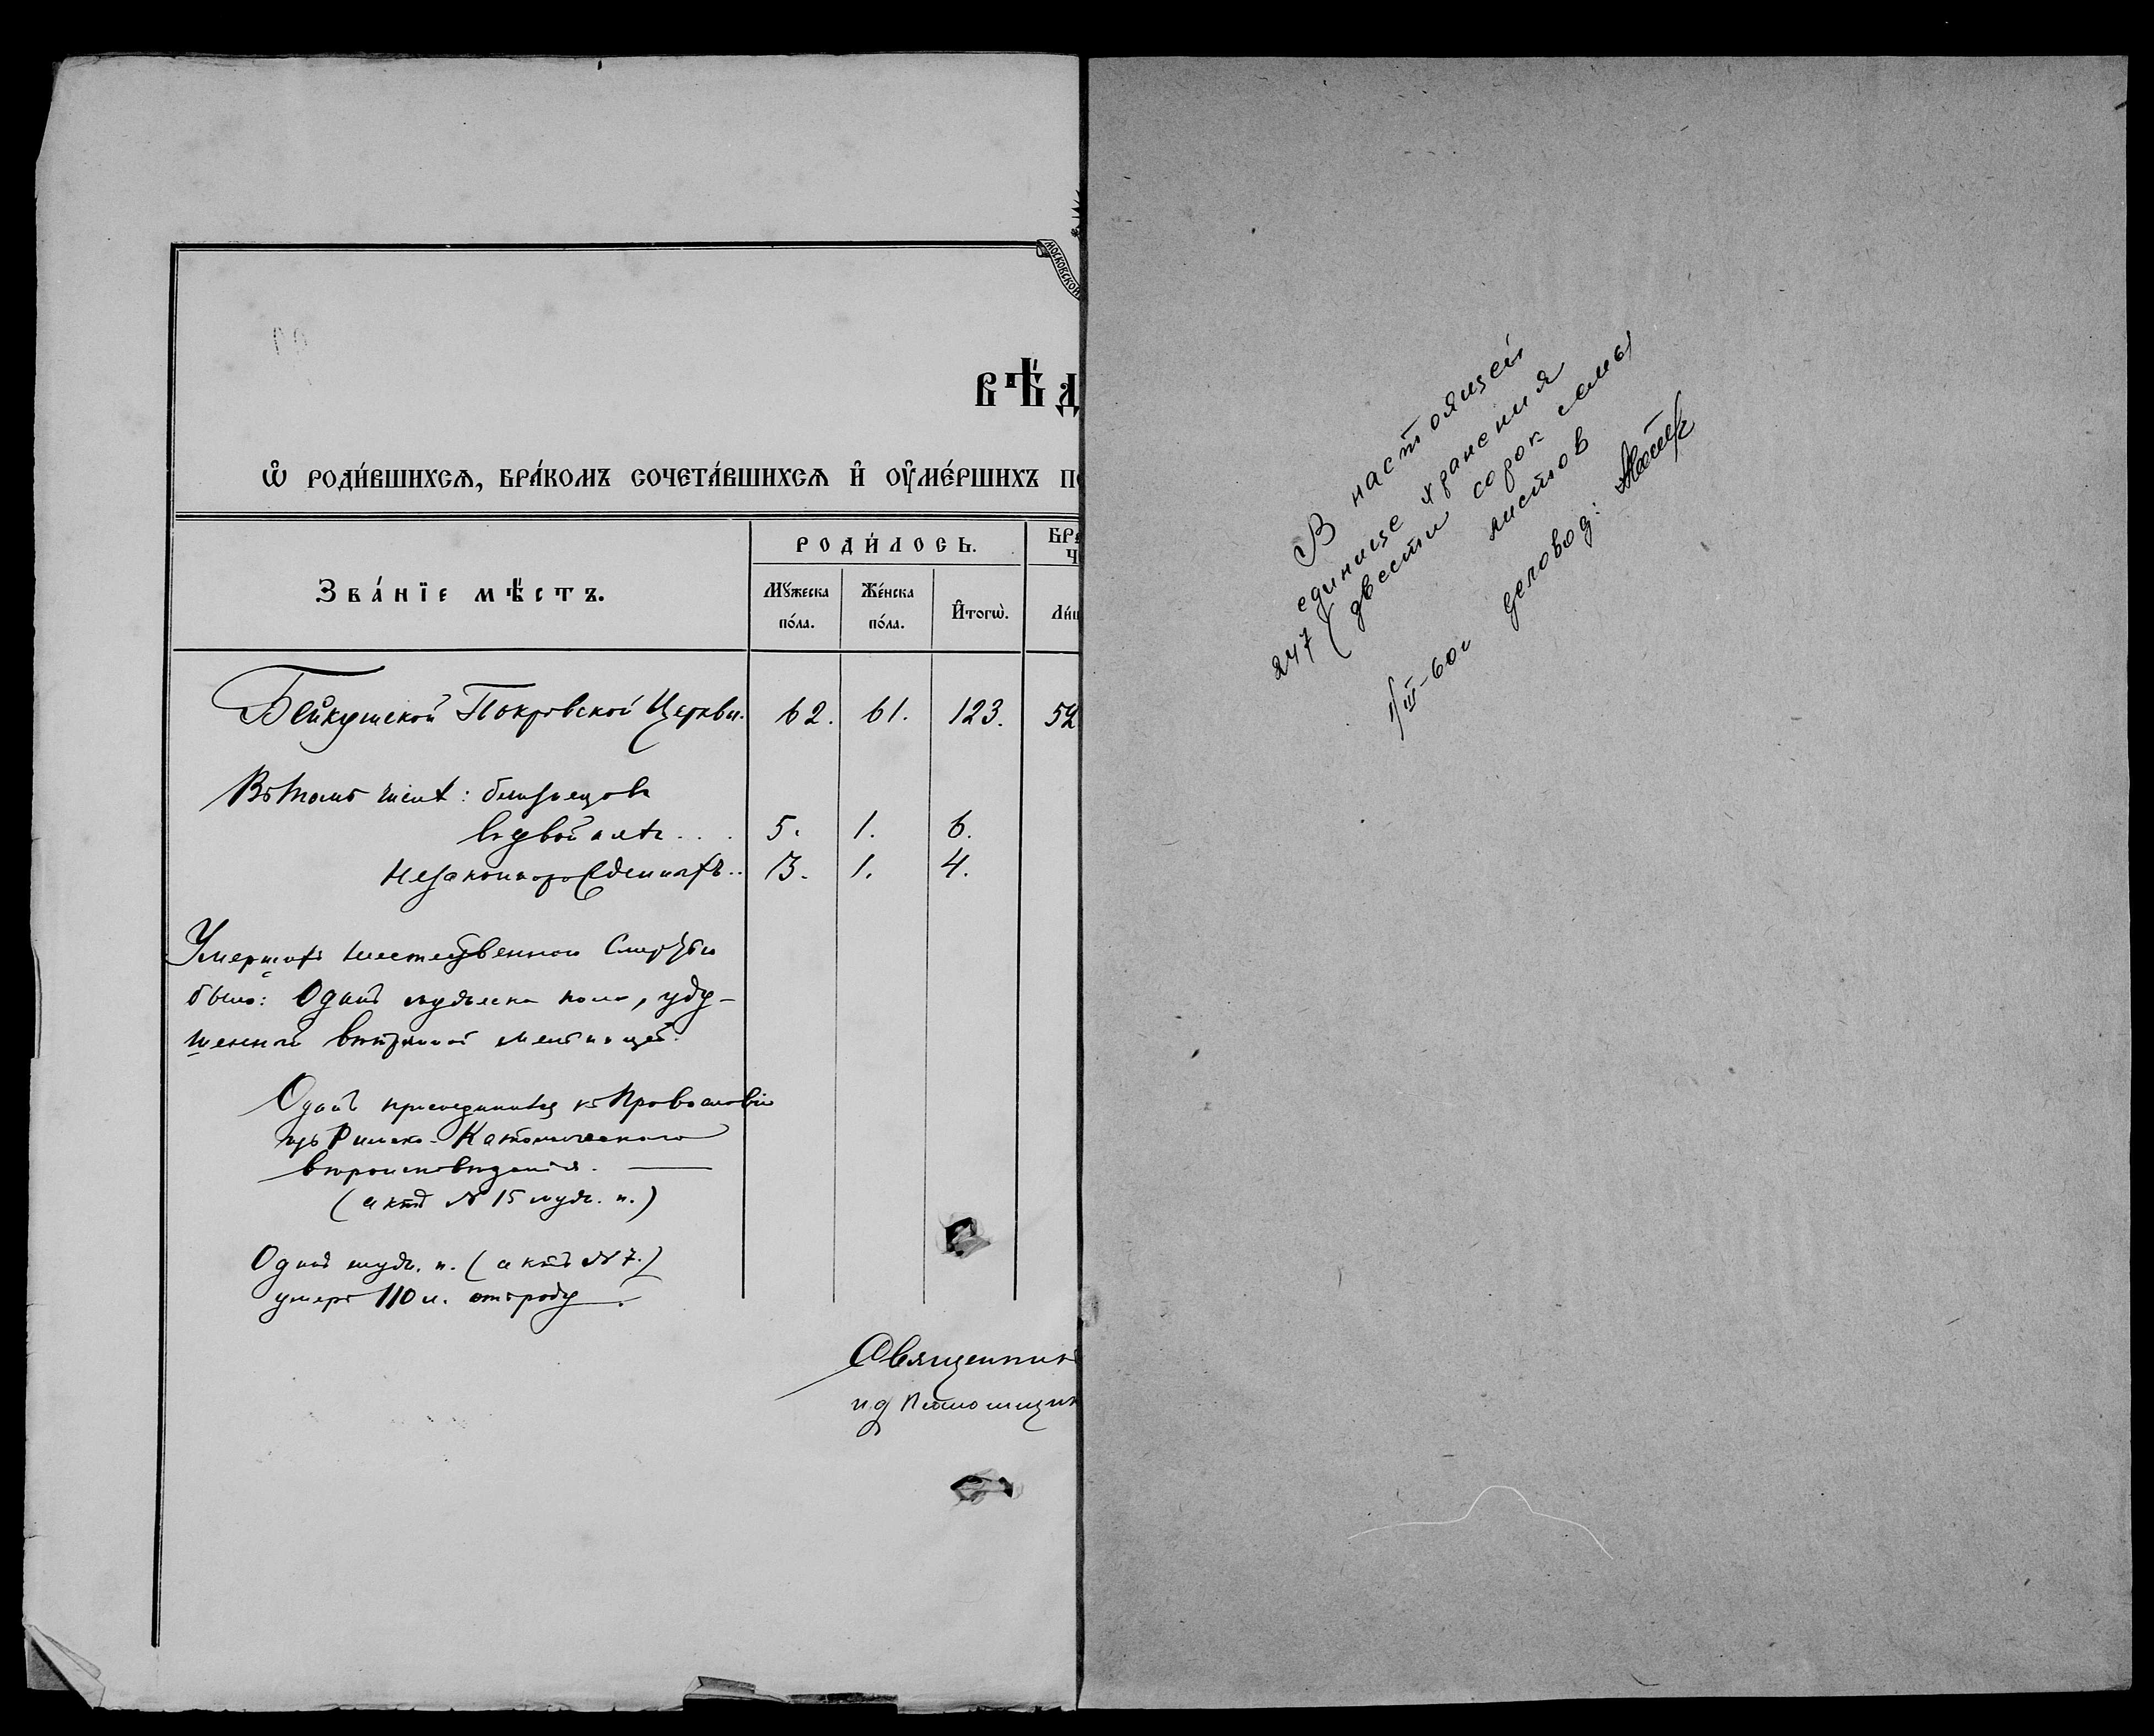 МОСКОВСКОЙ
ВѢ́Д
Ѡ҆ РОДИ́ВШИХСѦ, БРА́КОМЪ СОЧЕТА́ВШИХСѦ И҆ ОУ҆МЕ́РШИХЪ П
Зва́нїе мѣ́стъ.
РОДИ́ЛОСЬ.
БРА
Ч
Мꙋ́жеска по́ла.
Же́нска по́ла.
И҆тогѡ̀.
Ли
Бейкушской Покровской Церкви. 62. 61. 123. 52
Въ томъ числѣ: близнецовъ
5. 1. 6.
незаконнорожденныхъ.. 3. 1. 4.
Умершихъ неестественною смертью
было: Одинъ мужеска пола, уду-
шенный
Одинъ присоединился къ Православію
изъ Римско-Католическаго
вѣроисповѣданія.
(актъ № 15 муж. п.)
Одинъ муж. п. (актъ № 7.)
умеръ 110 л. отъ роду.
Священник
и д Псаломщик
В настоящей
единице хранения
247 (двести сорок семь)
листов
1/III-60г деловод: